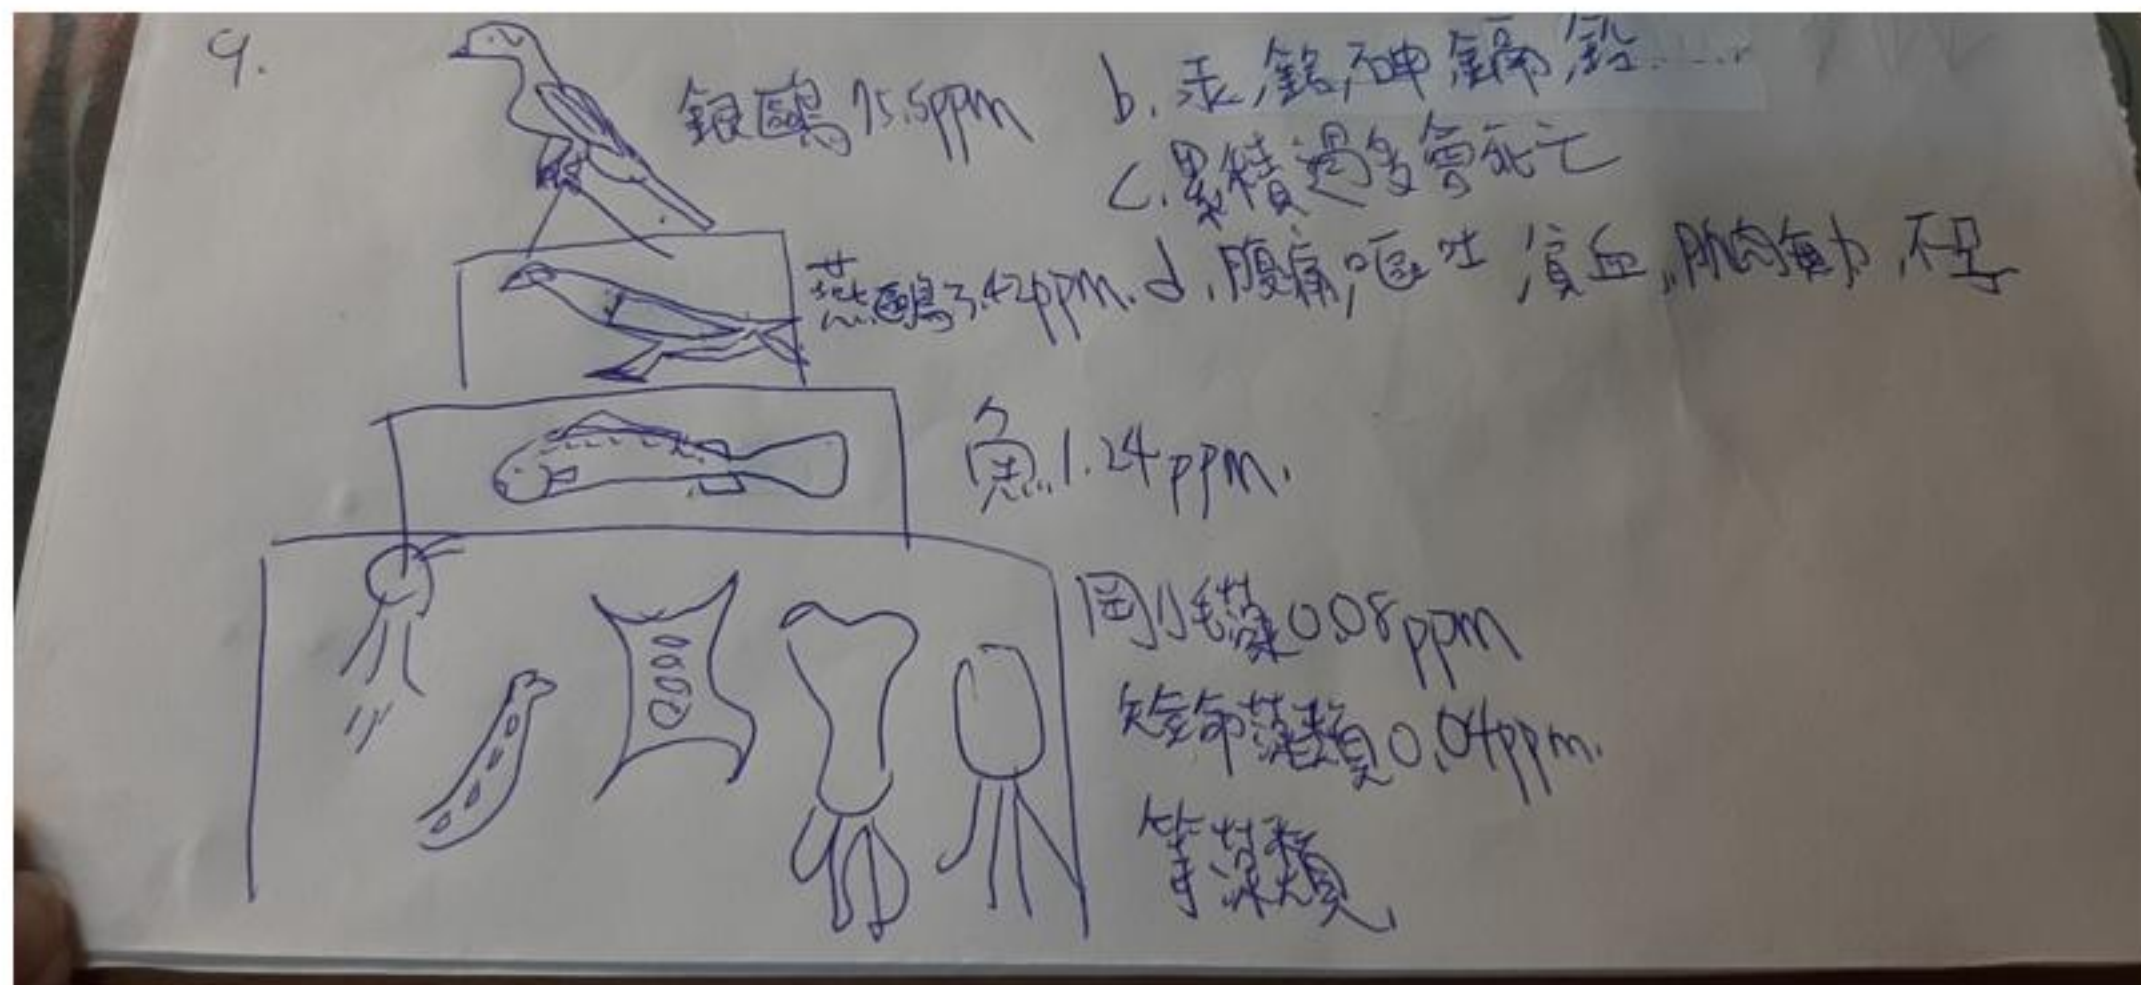 9.
銀鷗75.5ppm
b. 汞,鉻,砷,鎘,鉛......
c.累積過多會死亡
燕鷗3.42ppm.
d.腹痛,嘔吐,貧血,肌肉無力,不足
魚1.24ppm.
剛毛藻0.08ppm
矮節藻類0.04ppm.
等藻類